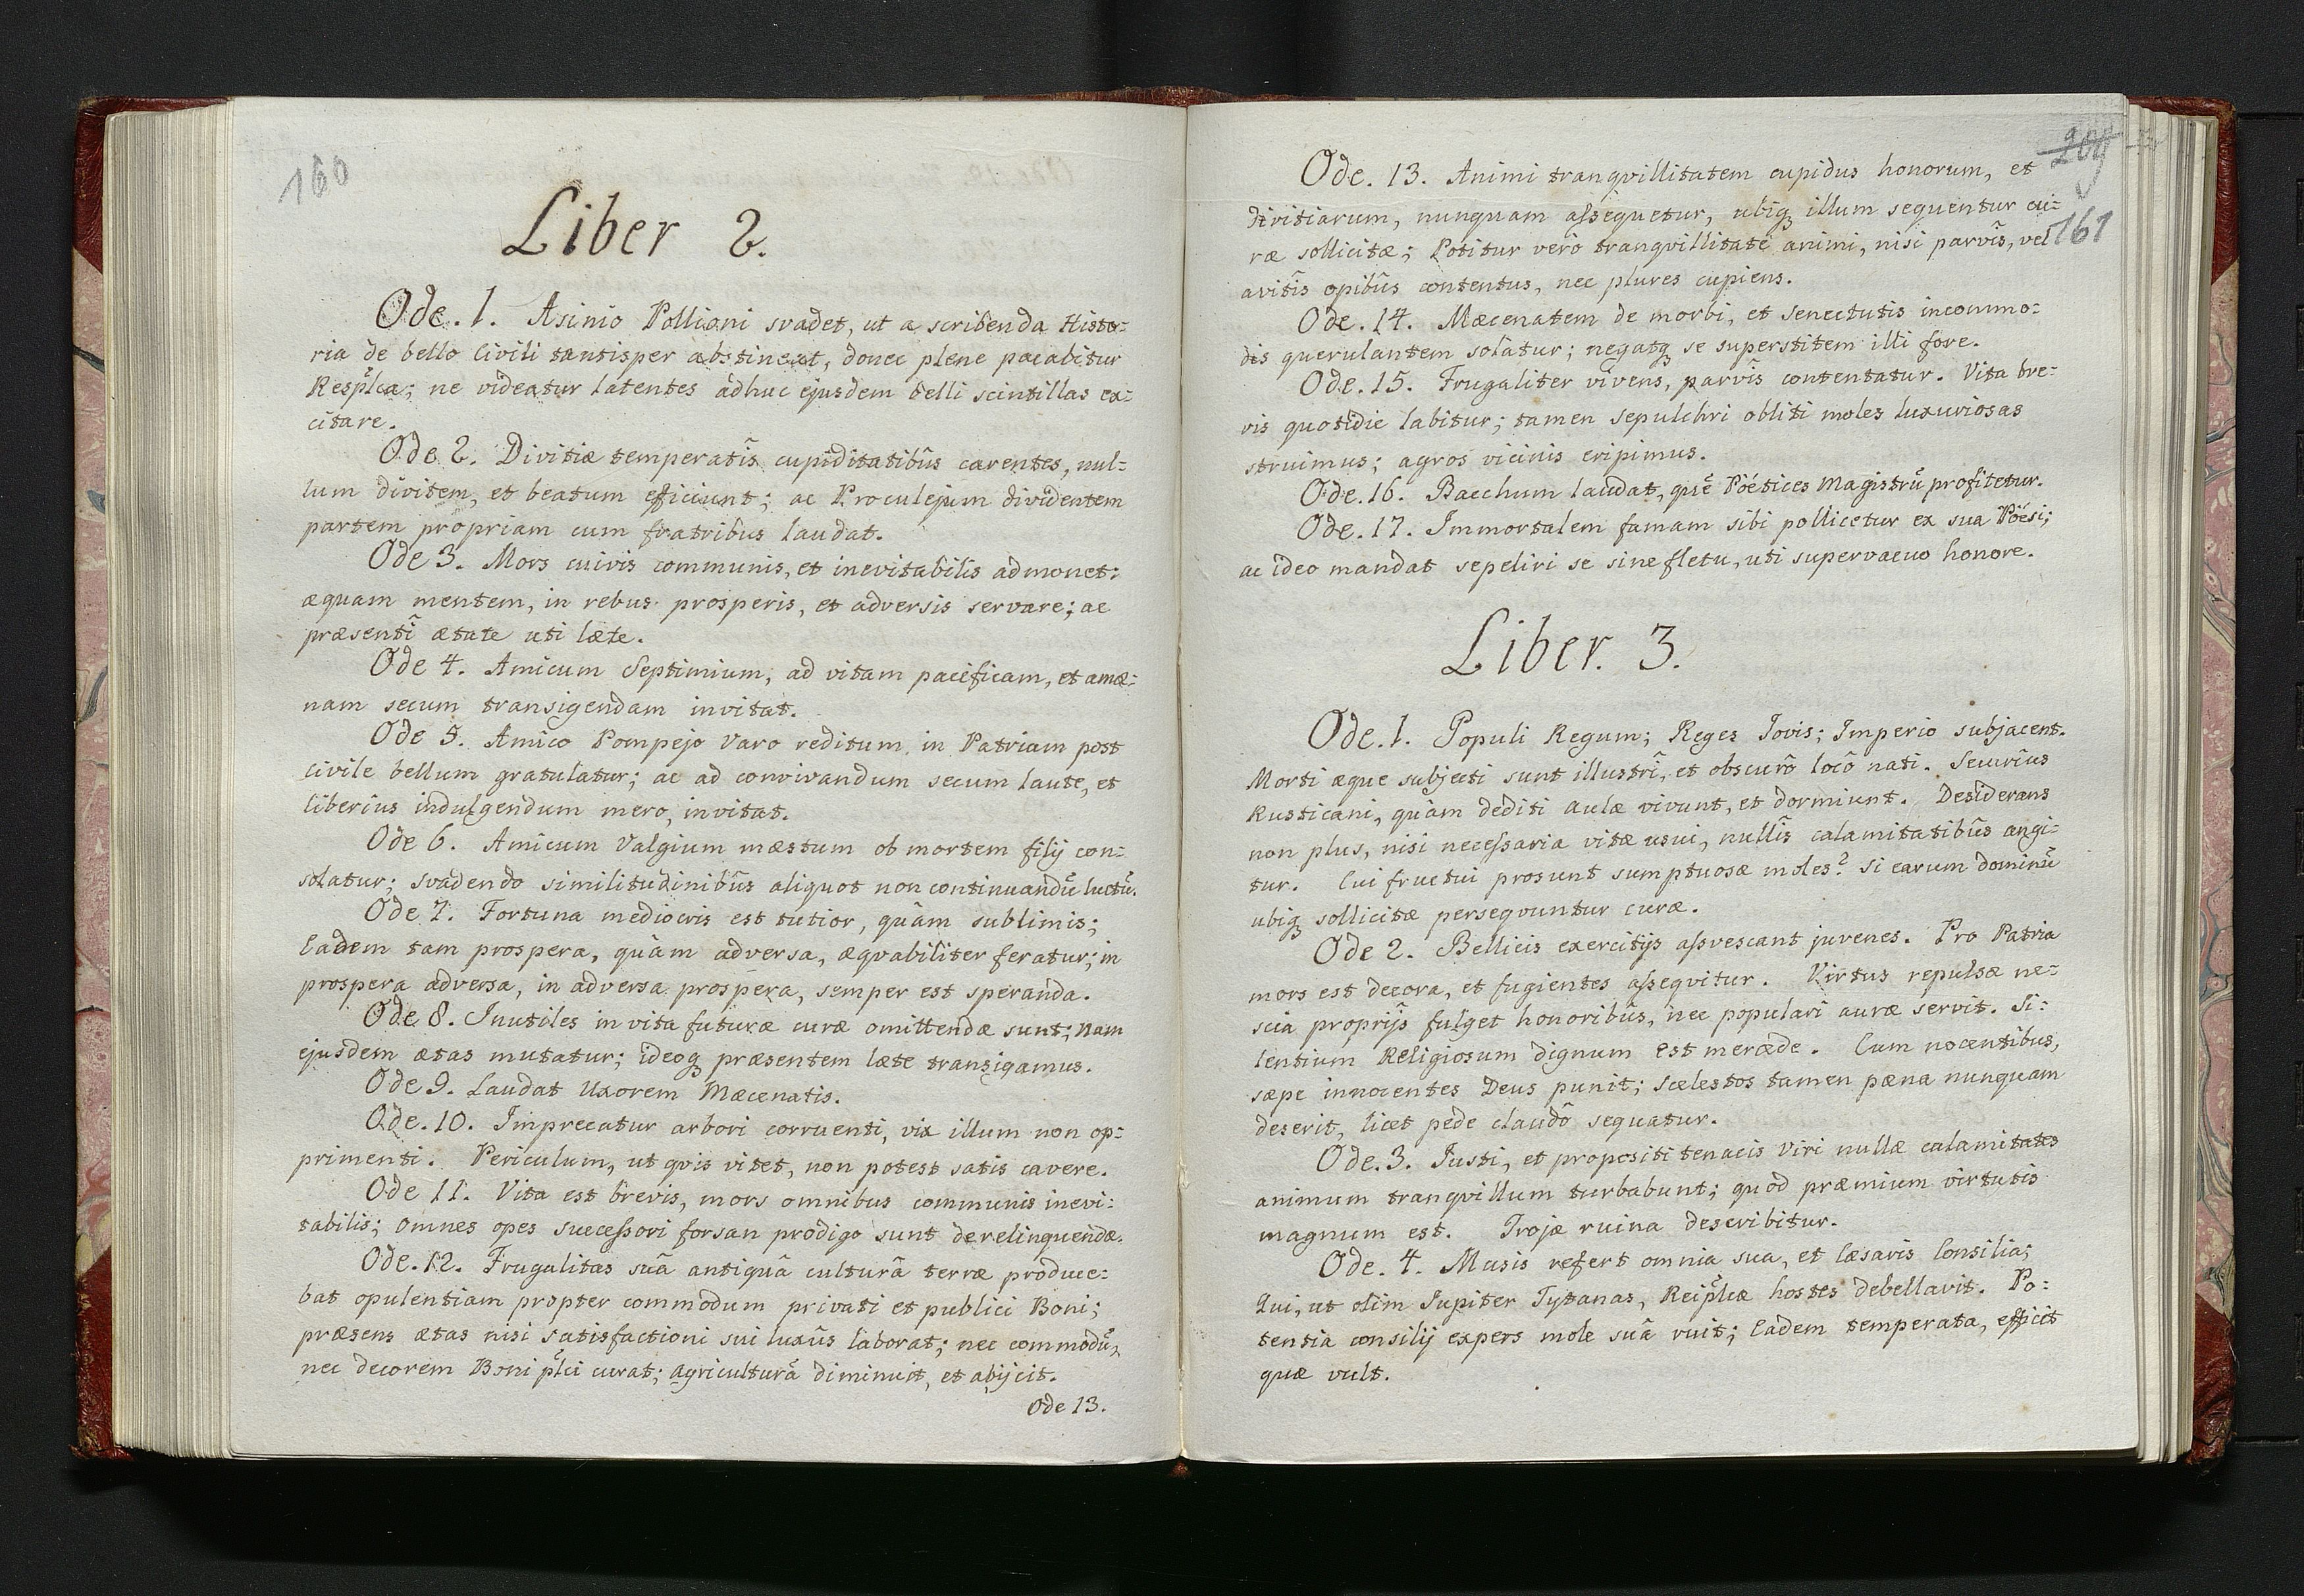 160
Liber 2.
Ode. 1. Asinio Pollioni svadet, ut a scribenda Histo:
ria de bello Civili tantisper abstineat, donec plene pacabitur
Resp̃lca; ne videatur latentes adhuc ejusdem belli scintillas ex:
citare.
Ode 2. Divitiæ temperatîs cupiditatibûs carentes, nul:
lum divitem, et beatum efficiunt; ac Proculejum dividentem
partem propriam cum fratribus laudat.
Ode 3. Mors cuivis communis, et inevitabilis admonet:
æquam mentem, in rebus prosperis, et adversis servare; ac
præsentî ætate uti læte.
Ode 4. Amicum Septimium, ad vitam pacificam, et amæ:
nam secum transigendam invitat.
Ode 5. Amico Pompejo Varo reditum in Patriam post
civile bellum gratulatur; ac ad convivandum secum laute, et
liberius indulgendum mero, invitat.
Ode 6. Amicum Valgium mæstum ob mortem filij con:
solatur; svadendo similitudinibûs aliquot non continuandũ luctũ.
Ode 7. Fortuna mediocris est tutior, quàm sublimis;
Eadem tam prospera, quàm adversa, æqvabiliter feratur; in
prospera adversa, in adversa prospera, semper est speranda.
Ode 8. Inutiles in vita futuræ curæ omittendæ sunt; Nam
ejusdem ætas mutatur; ideoq̃ præsentem læte transigamus.
Ode 9. Laudat Uxorem Mæcenatis.
Ode. 10. Imprecatur arbori corruenti, vix illum non op:
primenti. Periculum, ut qvis vitet, non potest satis cavere.
Ode 11. Vita est brevis, mors omnibus communis inevi:
tabilis; omnes opes successori forsan prodigo sunt derelinquendæ.
Ode. 12. Frugalitas suâ antiquâ culturâ terræ produce:
bat opulentiam propter commodum privati et publici Boni;
præsens ætas nisi satisfactioni sui luxûs laborat; nec commodũ,
nec decorem Boni p̃lci curat; agriculturã diminuit, et abijcit.
Ode 13.
209
161
Ode. 13. Animi tranqvillitatem cupidus honorum, et
divitiarum, nunquam assequetur, ubiq̃ illum sequentur cu:
ræ sollicitæ; Potitur verò tranqvillitate animi, nisi parvîs, vel
avitîs opibûs contentus, nec plures cupiens.
Ode. 14. Mæcenatem de morbi, et senectutis incommo:
dis querulantem solatur; negatq̃ se superstitem illi fore.
Ode. 15. Frugaliter vivens, parvîs contentatur. Vita bre:
vis quotidie labitur; tamen sepulchri obliti moles luxuriosas
struimus; agros vicinis eripimus.
Ode. 16. Bacchum laudat, quẽ Poétices Magistrũ profitetur.
Ode. 17. Immortalem famam sibi pollicetur ex sua Poësi;
ac ideo mandat sepeliri se sine fletu, uti supervacuo honore.
Liber. 3.
Ode. 1. Populi Regum; Reges Jovis; Imperio subjacent.
Morti æque subjecti sunt illustrî, et obscurô locô nati. Securius
Rusticani, quàm dediti aulæ vivunt, et dormiunt. Desiderans
non plus, nisi necessaria vitæ usui, nullîs calamitatibûs angi:
tur. Cui fructui prosunt sumptuosæ moles? si earum dominũ
ubiq̃ sollicitæ perseqvuntur curæ.
Ode 2. Bellicis exercitijs assvescant juvenes. Pro Patria
mors est decora, et fugientes asseqvitur. Virtus repulsæ ne:
scia proprijs fulget honoribûs, nec populari auræ servit. Si:
lentium Religiosum dignum est mercede. Cum nocentibus,
sæpe innocentes Deus punit; scelestos tamen pæna nunquam
deserit, licet pede claudô sequatur.
Ode. 3. Justi, et propositi tenacis Viri nullæ calamitates
animum tranqvillum turbabunt; quod præmium virtutis
magnum est. Trojæ ruina describitur.
Ode. 4. Musis refert omnia sua, et Cæsaris Consilia;
Qui, ut olim Jupiter Tytanas, Reip̃lcæ hostes debellavit. Po:
tentia consilij expers mole suâ ruit; Eadem temperata, efficit
quæ vult.